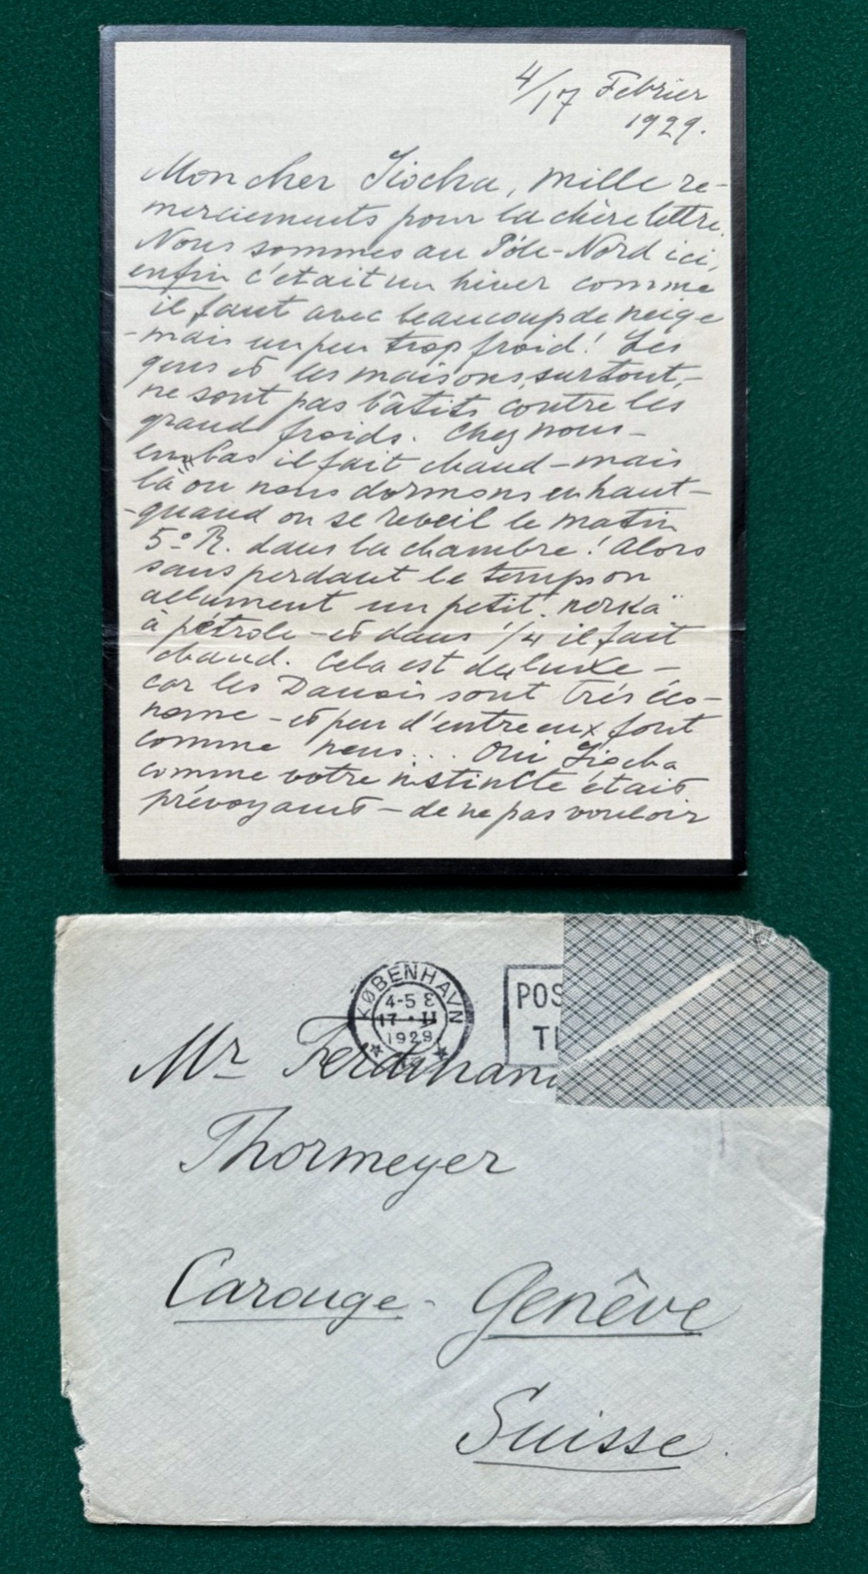 4/17 Febrier
1929.
Mon cher Siocha, mille re-
merciements pour la chère lettre.
Nous sommes au Pôle-Nord ici,
enfin c'etait un hiver comme
il faut avec beaucoup de neige
- mais un peu trop froid! Les
gens et les maisons, surtout,-
ne sont pas bâtits contre les
grand froids. Chez nous-
en bas il fait chaud - mais
là ou nous dormons en haut -
- quand on se reveil le matin
5° R. dans la chambre! Alors
sans perdant le temps on
allument un petit
à pétrole - et dans 1/4 il fait
chaud. Cela est du luxe -
car les Danois sont très éco-
nome - et peu d'entre eux font
comme nous... Oui Siocha
comme votre instinkte était
prévoyant - de ne pas vouloir
KØBENHAVN
4-5 E
17 • II
1929
POS
TI
Mr Ferdinand
Thormeyer
Carouge - Genêve
Suisse.